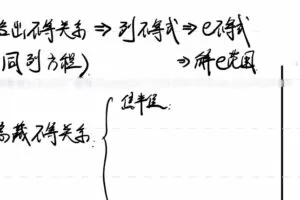 出不等关系 ⇒ 列不等式 ⇒ e不等式
同列方程) ⇒ 解e范围
焦半径:
高藏不等关系: